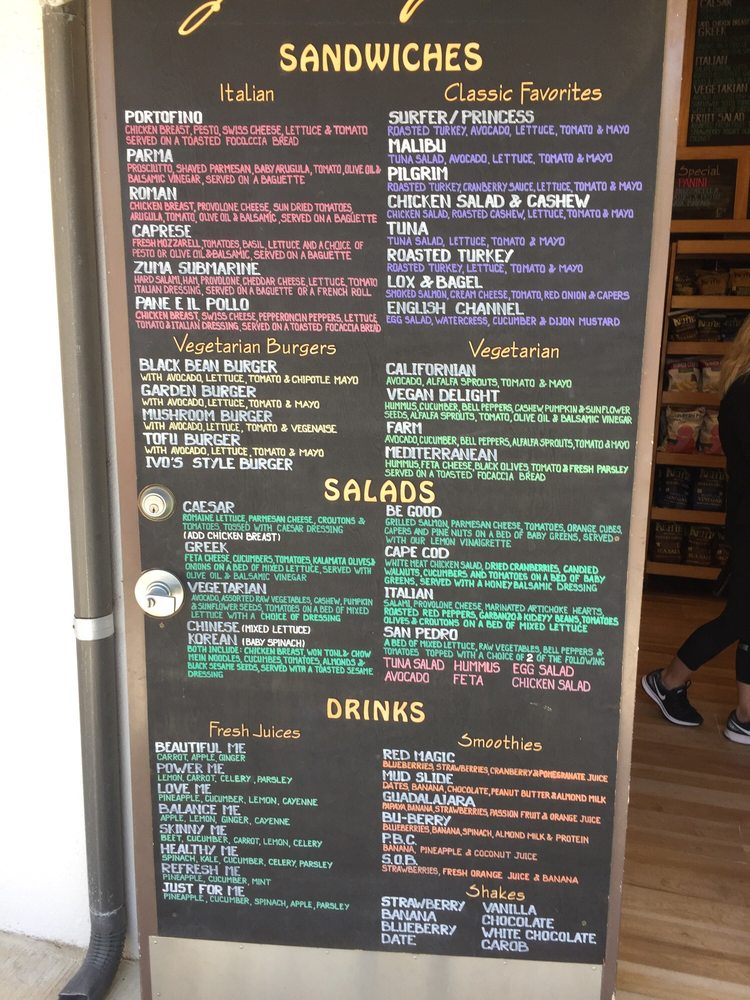 SANDWICHES
Italian
PORTOFINO
CHICKEN BREAST, PESTO, SWISS CHEESE, LETTUCE & TOMATO
SERVED ON A TOASTED FOCOLCCIA BREAD
PARMA
PROSCIUTTO, SHAVED PARMESAN, BABY ARUGULA, TOMATO, OLIVE OIL &
BALSAMIC VINEGAR, SERVED ON A BAGUETTE
ROMAN
CHICKEN BREAST, PROVOLONE CHEESE, SUN DRIED TOMATOES,
ARUGULA, TOMATO, OLIVE OIL & BALSAMIC, SERVED ON A BAGUETTE
CAPRESE
FRESH MOZZARELL, TOMATOES, BASIL, LETTUCE AND A CHOICE OF
PESTO OR OLIVE OIL & BALSAMIC. SERVED ON A BAGUETTE
ZUMA SUBMARINE
HARD SALAMI, HAM, PROVOLONE, CHEDDAR CHEESE, LETTUCE, TOMATO
ITALIAN DRESSING, SERVED ON A BAGUETTE OR A FRENCH ROLL
PANE E IL POLLO
CHICKEN BREAST, SWISS CHEESE, PEPPERONCIN PEPPERS, LETTUCE,
TOMATO & ITALIAN DRESSING, SERVED ON A TOASTED FOCACCIA BREAD
Classic Favorites
SURFER/PRINCESS
ROASTED TURKEY, AVOCADO, LETTUCE, TOMATO & MAYO
MALIBU
TUNA SALAD, AVOCADO, LETTUCE, TOMATO & MAYO
PILGRIM
ROASTED TURKEY, CRANBERRY SAUCE, LETTUCE, TOMATO & MAYO
CHICKEN SALAD & CASHEW
CHICKEN SALAD, ROASTED CASHEW, LETTUCE, TOMATO & MAYO
TUNA
TUNA SALAD, LETTUCE, TOMATO & MAYO
ROASTED TURKEY
ROASTED TURKEY, LETTUCE, TOMATO & MAYO
LOX & BAGEL
SMOKED SALMON, CREAM CHEESE, TOMATO, RED ONION & CAPERS
ENGLISH CHANNEL
EGG SALAD, WATERCRESS, CUCUMBER & DIJON MUSTARD
Vegetarian Burgers
BLACK BEAN BURGER
WITH AVOCADO, LETTUCE, TOMATO & CHIPOTLE MAYO
GARDEN BURGER
WITH AVOCADO, LETTUCE, TOMATO & MAYO
MUSHROOM BURGER
WITH AVOCADO, LETTUCE, TOMATO & VEGENAISE
TOFU BURGER
WITH AVOCADO, LETTUCE, TOMATO & MAYO
IVO'S STYLE BURGER
Vegetarian
CALIFORNIAN
AVOCADO, ALFALFA SPROUTS, TOMATO & MAYO
VEGAN DELIGHT
HUMMUS, CUCUMBER, BELL PEPPERS, CASHEW, PUMPKIN & SUNFLOWER
SEEDS, ALFALFA SPROUTS, TOMATO, OLIVE OIL & BALSAMIC VINEGAR
FARM
AVOCADO, CUCUMBER, BELL PEPPERS, ALFALFA SPROUTS, TOMATO & MAYO
MEDITERRANEAN
HUMMUS, FETA CHEESE, BLACK OLIVES TOMATO & FRESH PARSLEY
SERVED ON A TOASTED FOCACCIA BREAD
SALADS
CAESAR
ROMAINE LETTUCE, PARMESAN CHEESE, CROUTONS &
TOMATOES, TOSSED WITH CAESAR DRESSING
(ADD CHICKEN BREAST)
GREEK
FETA CHEESE, CUCUMBERS, TOMATOES, KALAMATA OLIVES &
ONIONS ON A BED OF MIXED LETTUCE, SERVED WITH
OLIVE OIL & BALSAMIC VINEGAR
VEGETARIAN
AVOCADO, ASSORTED RAW VEGETABLES, CASHEW, PUMPKIN
& SUNFLOWER SEEDS, TOMATOES ON A BED OF MIXED
LETTUCE WITH A CHOICE OF DRESSING
CHINESE (MIXED LETTUCE)
KOREAN (BABY SPINACH)
BOTH INCLUDE: CHICKEN BREAST, WON TON & CHOW
MEIN NOODLES, CUCUMBES, TOMATOES, ALMONDS &
BLACK SESAME SEEDS, SERVED WITH A TOASTED SESAME
DRESSING
BE GOOD
GRILLED SALMON, PARMESAN CHEESE, TOMATOES, ORANGE CUBES,
CAPERS AND PINE NUTS ON A BED OF BABY GREENS, SERVED
WITH OUR LEMON VINAIGRETTE
CAPE COD
WHITE MEAT CHICKEN SALAD, DRIED CRANBERRIES, CANDIED
WALNUTS, CUCUMBERS AND TOMATOES ON A BED OF BABY
GREENS, SERVED WITH A HONEY BALSAMIC DRESSING
ITALIAN
SALAMI, PROVOLONE CHEESE, MARINATED ARTICHOKE HEARTS,
ROASTED RED PEPPERS, GARBANZO & KIDEYY BEANS, TOMATOES,
OLIVES & CROUTONS ON A BED OF MIXED LETTUCE
SAN PEDRO
A BED OF MIXED LETTUCE, RAW VEGETABLES, BELL PEPPERS &
TOMATOES TOPPED WITH A CHOICE OF 2 OF THE FOLLOWING
TUNA SALAD HUMMUS EGG SALAD
AVOCADO FETA CHICKEN SALAD
DRINKS
Fresh Juices
BEAUTIFUL ME
CARROT, APPLE, GINGER
POWER ME
LEMON, CARROT, CELERY, PARSLEY
LOVE ME
PINEAPPLE, CUCUMBER, LEMON, CAYENNE
BALANCE ME
APPLE, LEMON, GINGER, CAYENNE
SKINNY ME
BEET, CUCUMBER, CARROT, LEMON, CELERY
HEALTHY ME
SPINACH, KALE, CUCUMBER, CELERY, PARSLEY
REFRESH ME
PINEAPPLE, CUCUMBER, MINT
JUST FOR ME
PINEAPPLE, CUCUMBER, SPINACH, APPLE, PARSLEY
Smoothies
RED MAGIC
BLUEBERRIES, STRAWBERRIES, CRANBERRY & POMEGRANATE JUICE
MUD SLIDE
DATES, BANANA, CHOCOLATE, PEANUT BUTTER & ALMOND MILK
GUADALAJARA
PAPAYA, BANANA, STRAWBERRIES, PASSION FRUIT & ORANGE JUICE
BU-BERRY
BLUEBERRIES, BANANA, SPINACH, ALMOND MILK & PROTEIN
P.B.C.
BANANA, PINEAPPLE & COCONUT JUICE
S.O.B.
STRAWBERRIES, FRESH ORANGE JUICE & BANANA
Shakes
STRAWBERRY VANILLA
BANANA CHOCOLATE
BLUEBERRY WHITE CHOCOLATE
DATE CAROB
CAESAR
ADD CHICKEN BREAST
GREEK
ITALIAN
VEGETARIAN
FRUIT SALAD
Special
PANINI